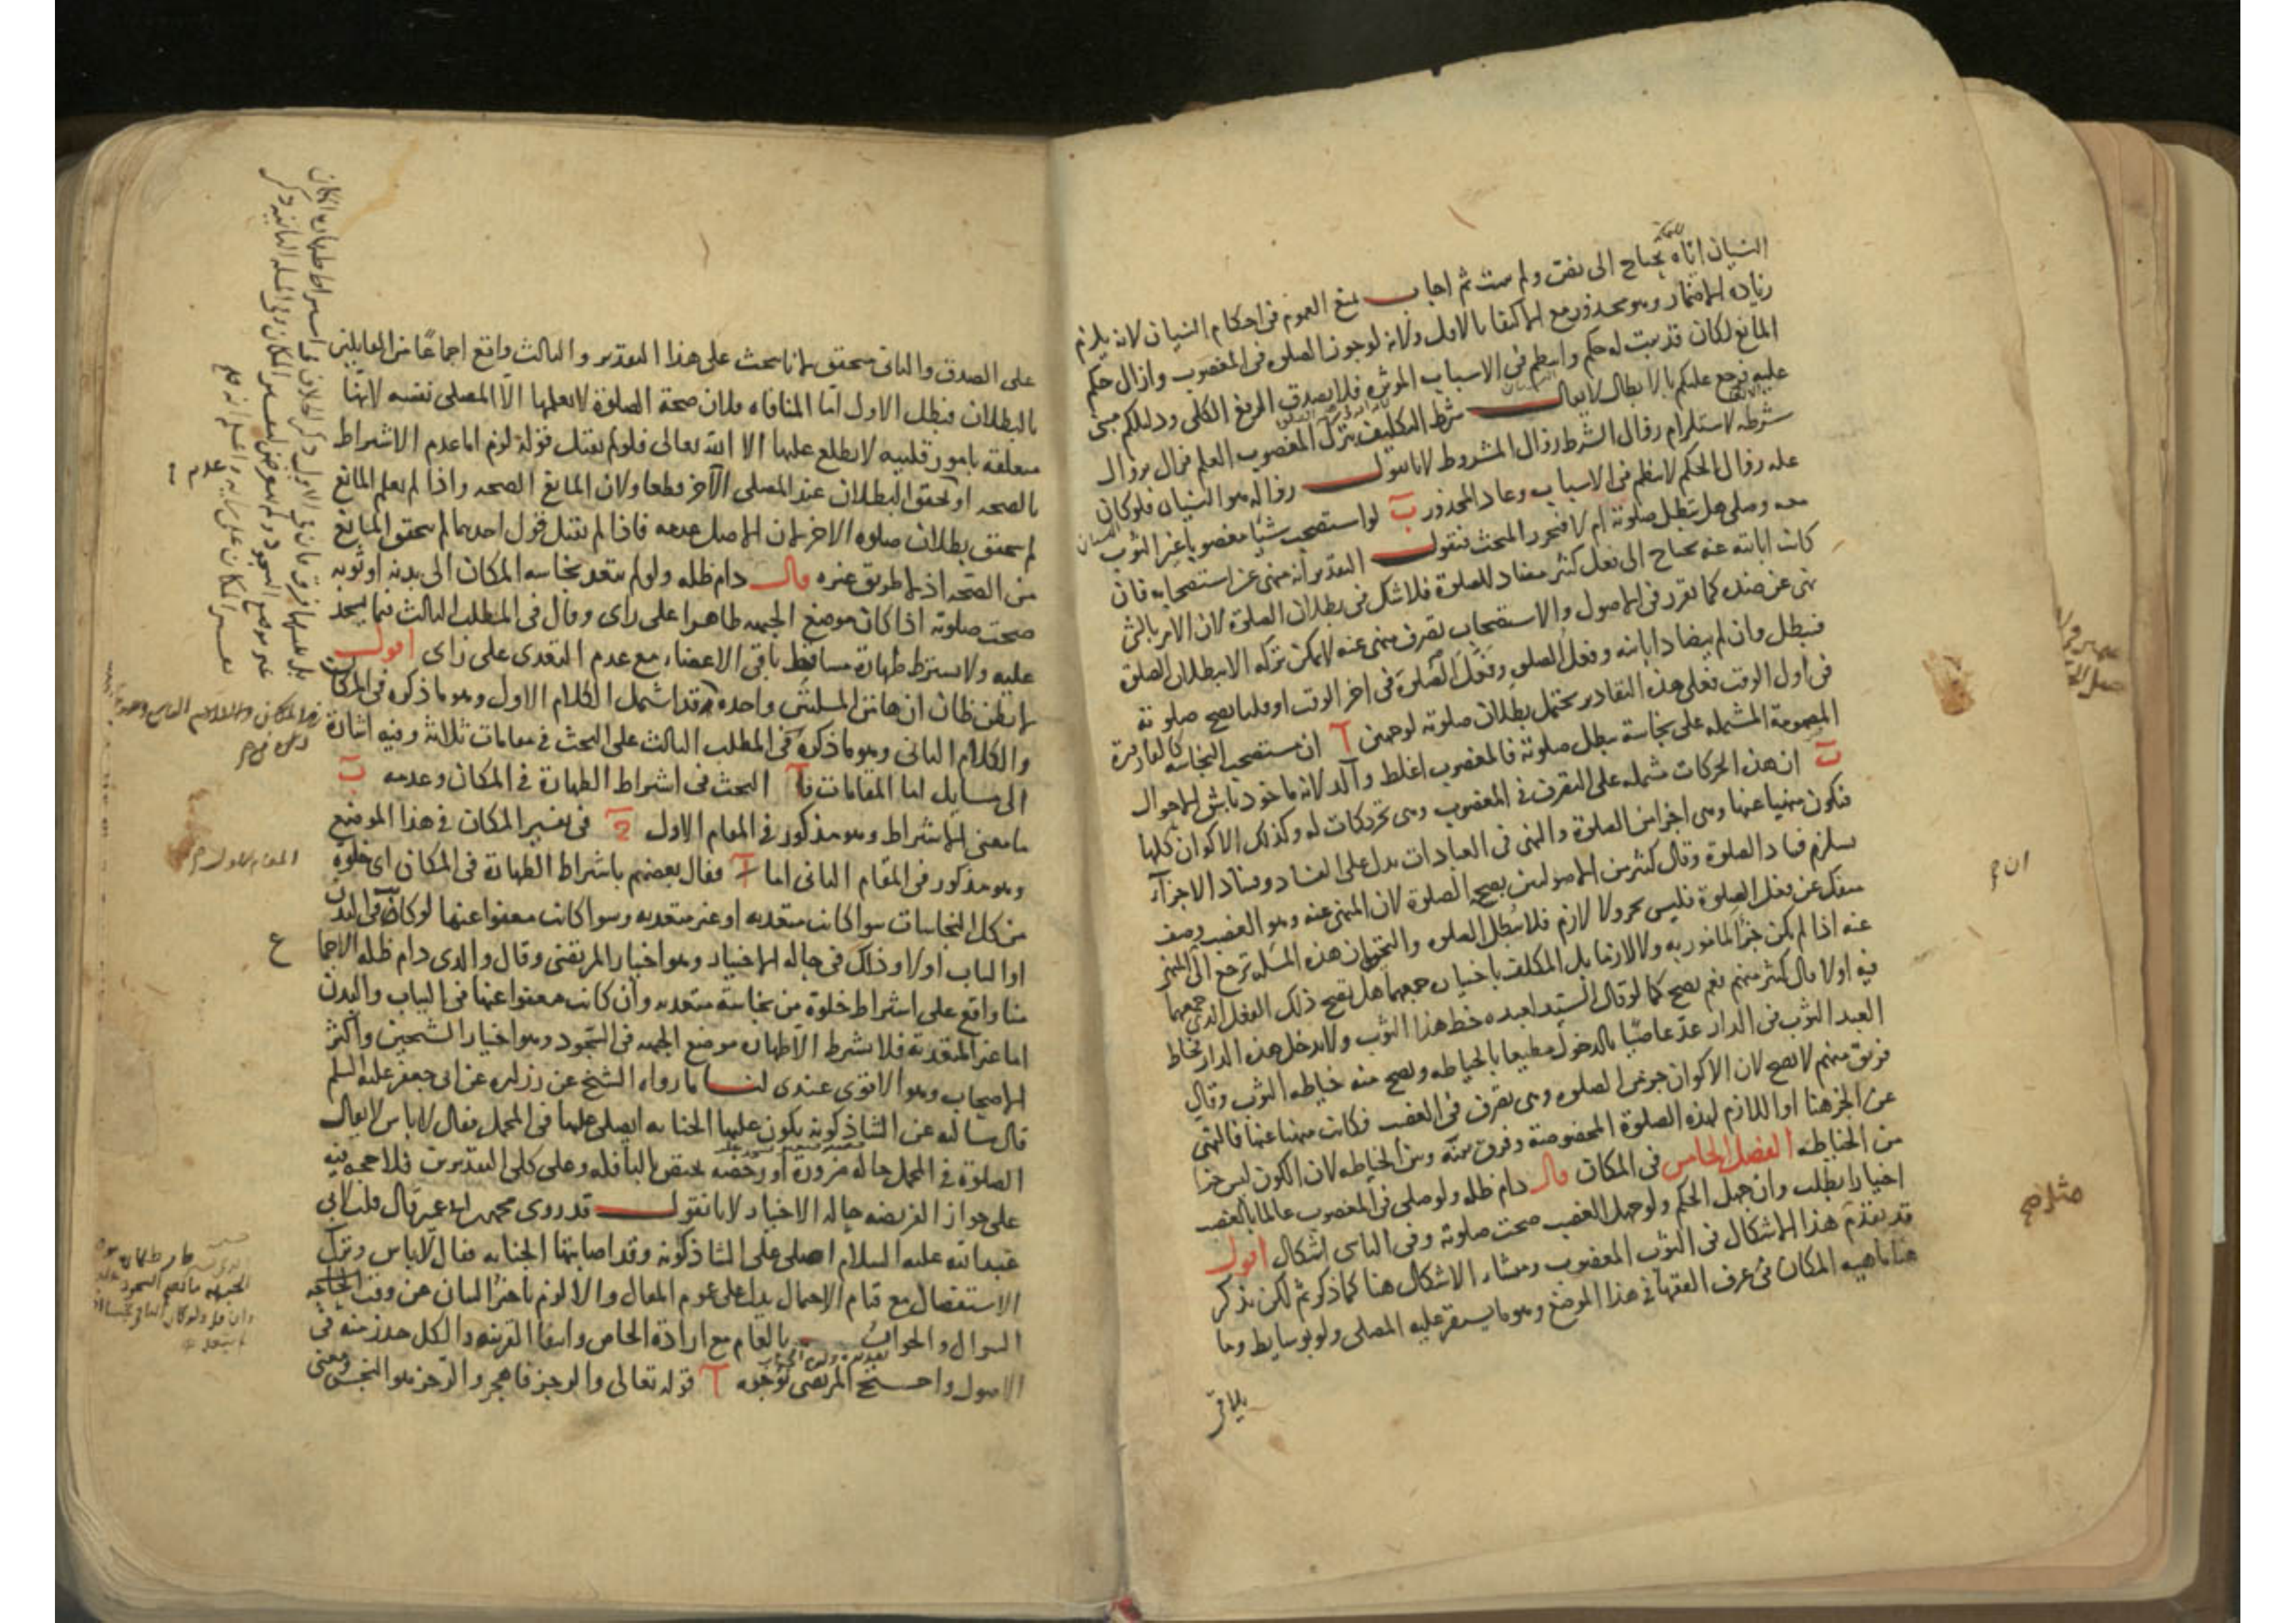 النسيان اتاه يحتاج الى نص ولم يثبت ثم اجاب بمنع العموم فى احكام النسيان لانه يلزم
زيادة الاضمار وهو محذور مع الاكتفا بالاول ولانه لوجوب الصلوه فى المغصوب وازال حكم
المانع لكان قد يثبت له حكم واسطه فى الاسباب الموثره فلا يصدق الرفع الكلى ودليلكم مبنى
عليه فرجع عليكم بالابطال لا يقال شرط التكليف بترك المغصوب العلم فزال بزوال
شرطه لاستلزام زوال الشرط زوال المشروط لانا نقول زواله هو النسيان فلو كان
عله زوال الحكم لانتظم فى الاسباب وعاد المحذور ب لو استصحب شيا مغصوبا غير الثوب
معه وصلى هل تبطل صلوته ام لا فنحرر المبحث فنقول التقدير انه منهى عن استصحابه فان
كانت ابانته عنه يحتاج الى فعل كثير مضاد للصلوة فلا شك فى بطلان الصلوة لان الامر بالشى
نهى عن ضده كما تقرر فى الاصول والاستصحاب تصرف منهى عنه لا يمكن تركه الا ببطلان الصلوة
فتبطل وان لم يضاد ابانته وفعل الصلوة وفعل الصلوة فى اخر الوقت او قلنا تصح صلوته
فى اول الوقت فعلى هذه التقادير يحتمل بطلان صلوته لوجهين ا ان مستصحب النجاسه كالقارورة
المصمومة المشتمله على نجاسة تبطل صلوته فالمغصوب اغلظ وآكد لانه ماخوذ باشق الاحوال
ب ان هذه الحركات مشتمله على التصرف فى المغصوب وهى تحركات له وكذلك الاكوان كلها
فتكون منهيا عنها وهى اجزاء من الصلوة والنهى فى العبادات يدل على الفساد وفساد الاجزآء
يستلزم فساد الصلوة وقال كثير من الاصوليين بصحه الصلوة لان المنهى عنه وهو الغصب وصف
منفك عن فعل الصلوة فليس بجزء ولا لازم فلا تبطل الصلوه والتحقيق ان هذه المسله ترجع الى المنهى
عنه اذا لم يكن جزأ للمامور به ولا لازما بل المكلف باختياره جمعهما هل يقبح ذلك الفعل الذى جمعهما
فيه اولا قال كثير منهم نعم يصح كما لو قال السيد لعبده خط هذا الثوب ولا تدخل هذه الدار فخاط
العبد الثوب فى الدار عدّ عاصيا بالدخول مطيعا بالخياطه ويصح منه خياطه الثوب وقال
فريق منهم لا يصح لان الاكوان جزء من الصلوه وهى تصرف فى الغصب فكانت منهيا عنها فالنهى
عن الجزء هنا او اللازم لهذه الصلوة المخصوصة وفرق بينه وبين الخياطه لان الكون ليس جزءا
من الخياطه الفصل الخامس فى المكان قال دام ظله ولو صلى فى المغصوب عالما بالغصب
اختيارا بطلت وان جهل الحكم ولو جهل الغصب صحت صلوته وفى الناسى اشكال اقول
قد تقدم هذا الاشكال فى الثوب المغصوب ومنشاء الاشكال هنا كما ذكر ثم لكن نذكر
هنا ماهيه المكان فى عرف الفقها فى هذا الموضع وهو ما يستقر عليه المصلى ولو بوسايط وما
يلاقى
ان
على الصدق والثانى متحقق لانا نبحث على هذا التقدير والثالث واقع اجماعا من القايلين
بالبطلان فبطل الاول اما المنافاه فلان صحة الصلوة لا يعلمها الا المصلى نفسه لانها
متعلقه بامور قلبيه لا يطلع عليها الا الله تعالى فلو لم يقبل قوله لزم اما عدم الاشتراط
بالصحه او تحقق البطلان عند المصلى الآخر قطعا ولان المانع الصحه واذا لم يعلم المانع
لم يتحقق بطلان صلوه الاخر لان الاصل عدمه فاذا لم يقبل قول احدهما لم يتحقق المانع
من الصحه اذ لا طريق غيره قال دام ظله ولو لم يتعد نجاسه المكان الى بدنه او ثوبه
صحت صلوته اذا كان موضع الجبهه طاهرا على راى وقال فى المطلب الثالث فيما يسجد
عليه ولا يشترط طهارة مساقط باقى الاعضاء مع عدم التعدى على راى اقول
لا يظن ظان ان هاتين المسلتين واحده وقد اشتمل الكلام الاول وهو ما ذكره فى المكان
والكلام الثانى وهو ما ذكره فى المطلب الثالث على البحث فى مقامات ثلاثة وفيه اشارة
الى مسايل اما المقامات فا البحث فى اشتراط الطهارة فى المكان وعدمه ب
ما معنى الاشتراط وهو مذكور فى المقام الاول ج فى تفسير المكان فى هذا الموضع
وهو مذكور فى المقام الثانى اما ا فقال بعضهم باشتراط الطهارة فى المكان اى خلوه
من كل النجاسات سوا كانت متعديه او غير متعديه وسوا كانت معفوا عنها لو كان فى البدن
او الثياب اولا وذلك فى حاله الاختيار وهو اختيار المرتضى وقال والدى دام ظله الاجماع
منا واقع على اشتراط خلوه من نجاسة متعديه وان كانت معفوا عنها فى الثياب والبدن
اما غير المتعدية فلا يشترط الا طهاره موضع الجبهه فى السجود وهو اختيار الشيخين واكثر
الاصحاب وهو الاقوى عندى لنا ما رواه الشيخ عن زراره عن ابى جعفر عليه السلم
قال سالته عن الشاذكونه يكون عليها الجنابه ايصلى عليها فى المحمل فقال لا باس لا يقال
الصلوة فى المحمل حاله ضرورة او رخصه تختص النافله وعلى كلى التقديرين فلا حجه فيه
على جواز الفريضه حاله الاختيار لانا نقول قد روى محمد بن ابى عمير قال قلت لابى
عبد الله عليه السلام اصلى على الشاذكونه وقد اصابتها الجنابه فقال لا باس وترك
الاستفصال مع قيام الاحتمال يدل على عموم المقال والا لزم تاخر البيان عن وقت الحاجه
السوال والجواب بالعام مع ارادة الخاص وانتفا القرينه والكل حذر منه فى
الاصول واحتج المرتضى بوجوه ا قوله تعالى والرجز فاهجر والرجز هو النجس ومعنى